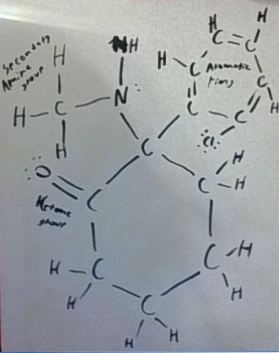 Secondary
Amine
group
H
NH
H
C
N
H
H
C
C
H
H
C
Aromatic
ring
C
C
H
C
Cl
C
O
Ketone
group
C
C
H
H
H
C
H
C
H
H
C
H
H